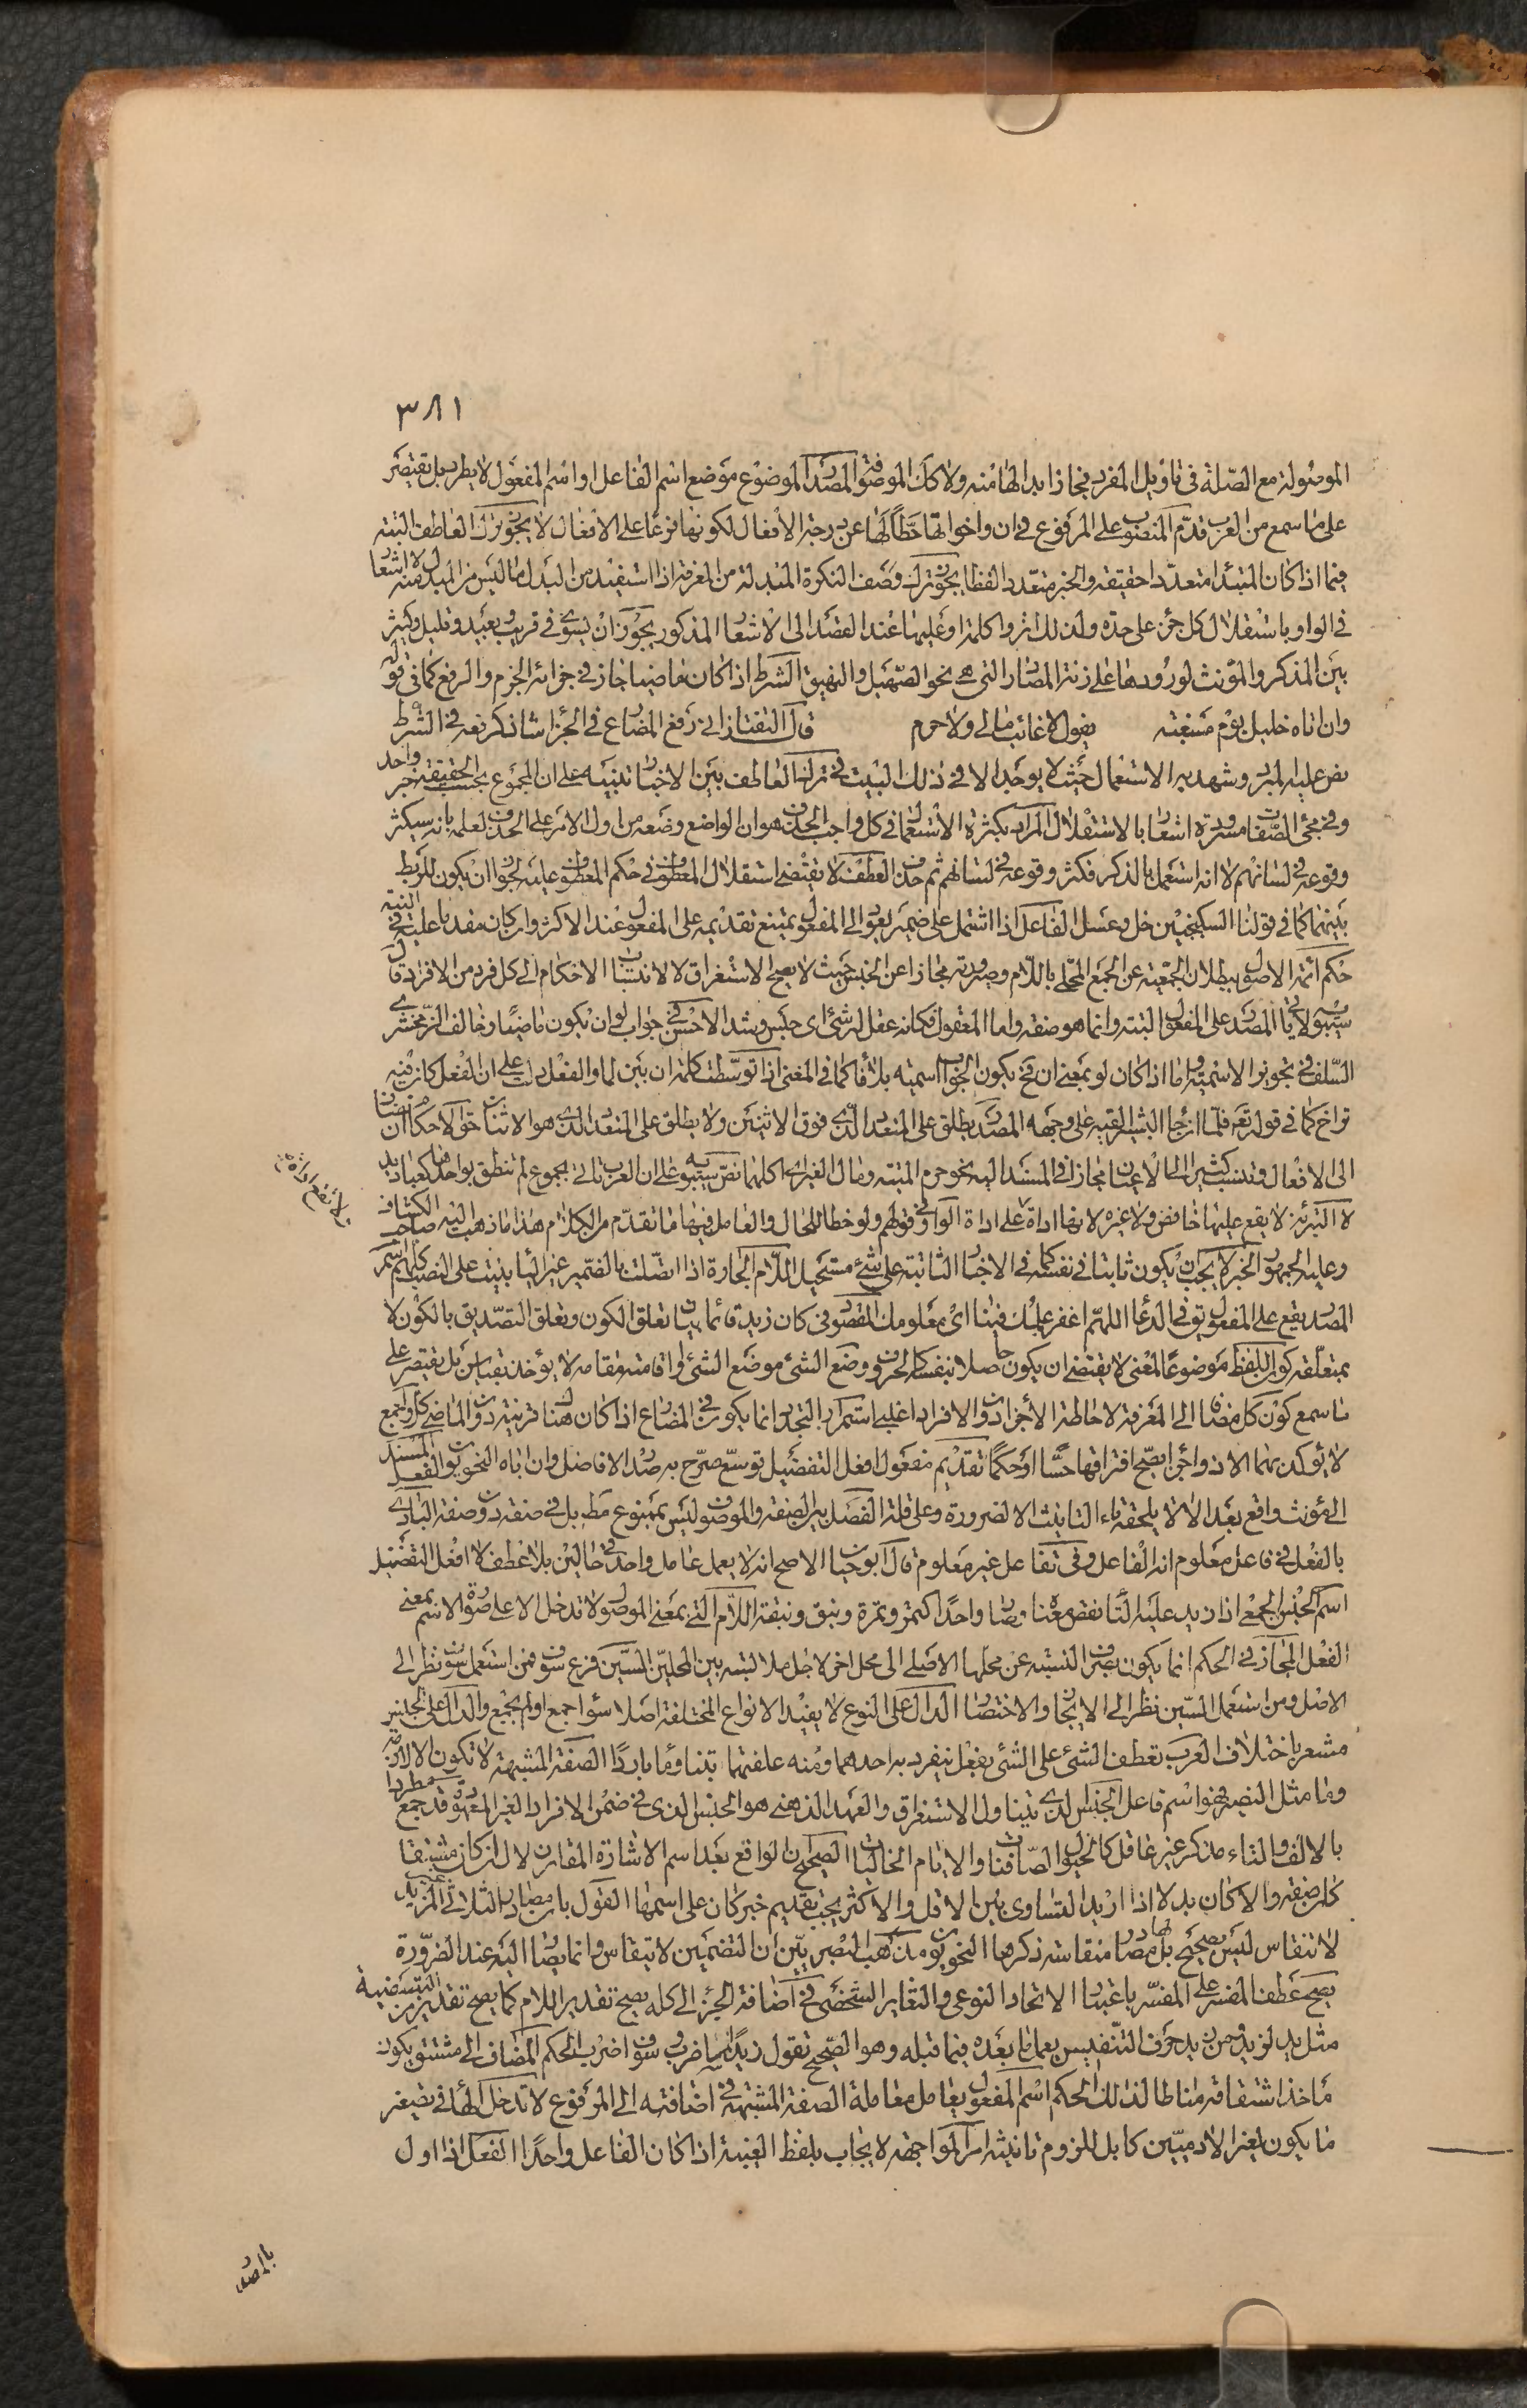 ٣٨١
الموصولة مع الصلة في تأويل المفرد فجاز ابدالها منه ولا كذلك الموصوفة المصدر الموضوع موضع اسم الفاعل او اسم المفعول لا يطرد بل يقتصر
على ما سمع من العرب قدم المنصوب على المرفوع في ان واخواتها حطا لها عن درجة الافعال لكونها فرعا على الافعال لا يجوز ترك العاطف البتة
فيما اذا كان المبتدأ متعددا حقيقة والخبر متعدد لفظا يجوز ترك وصف النكرة المبدلة من المعرفة اذا استفيد من البدل ما ليس من المبدل منه لا اشعار
في الواو باستقلال كل جزء على حدة ولذلك اثروا كلمة او عليها عند القصد الى الاشعار المذكور يجوز ان يسوى في قريب وبعيد وقليل وكثير
بين المذكر والمؤنث لورودها على زنة المصادر التي هي نحو الصهيل والنهيق الشرط اذا كان ماضيا جاز في جزائه الجزم والرفع كما في قوله
وان اتاه خليل يوم مسغبة يقول لا غائب مالي ولا حرم قال التفتازاني رفع المضارع في الجزاء شاذ كرفعه في الشرط
نص عليه المبرد وشهد به الاستعمال حيث لا يوجد الا في ذلك البيت في ترك العاطف بين الاخبار تنبيه على ان المجموع بحسب الحقيقة خبر واحد
وفي مجئ الصفات مسرودة اشعار بالاستقلال المراد بكثرة الاستعمال في كل واجب الحذف هو ان الواضع وضعه من اول الامر على الحذف لعلمه بانه سيكثر
وقوعه في لسانهم لا انه استعمل بالذكر فكثر وقوعه في لسانهم ثم حذف العطف لا يقتضي استقلال المعطوف في حكم المعطوف عليه لجواز ان يكون للربط
بينهما كما في قولنا السكنجبين خل وعسل الفاعل اذا اشتمل على ضمير يعود الى المفعول يمتنع تقديمه على المفعول عند الاكثر وان كان مقدما عليه في النية
حكم ائمة الاصول ببطلان الجمعية عن الجمع المحلى باللام وصيرورته مجازا عن الجنس حيث لا يصح الاستغراق لانتساب الاحكام الى كل فرد من الافراد قال
سيبويه لا يأتي المصدر على المفعول البتة وانما هو صفة واما المعقول فكانه عقل له شئ اى حبس وشد الاحسن في جواب لو ان يكون ماضيا وخالف الزمخشري
السلف في تجويز الاسمية واما اذا كان لو بمعنى ان فح يكون الجواب اسمية بلا فاء كما في المغني اذا توسطت كلمة ان بين لما والفعل دلت على ان الفعل كان فيه
تراخ كما في قوله تعالى فلما ان جاء البشير القيه على وجهه المصدر يطلق على المتعدد الذي فوق الاثنين ولا يطلق على المتعدد الذي هو الاثنان حق الاحكام ان تضاف
الى الافعال وقد تنسب كثيرا الى الاعيان مجازا في المسند اليه نحو حرم الميتة ومال الغير اى اكلهما نص سيبويه على ان العرب تأتي بجموع لم تنطق بواحدها كعباديد
لا التبرئة لا يقع عليها خافض ولا غيره لانها اداة ولا تقع اداة على اداة الواو في قولهم ولو خطا للحال والعامل فيها ما تقدم من الكلام هذا ما ذهب اليه صاحب الكشاف
وعليه الجمهور الخبر لا يجب ان يكون ثابتا في نفسه كما في الاخبار الثابتة على شئ مستحيل اللام الجارة اذا اتصلت بالضمير غير الياء بنيت على الفتح
المصدر يقع على المفعول يقال في الدعاء اللهم اغفر علمك فينا اى معلومك المقصود في كان زيد قائما بيان تعلق الكون وتعلق التصديق بالكون لا
بمتعلقه كون اللفظ موضوعا لمعنى لا يقتضي ان يكون حاصلا بنفسه كالحروف وضع الشئ موضع الشئ او اقامته مقامه لا يؤخذ بقياس بل يقتصر على
ما سمع كون كل مضافا الى المعرفة لاحاطة الاجزاء دون الافراد اغلبي استمرار التجدد انما يكون في المضارع اذا كان هناك قرينة دون الماضي كل واجمع
لا يؤكد بهما الا ذو اجزاء يصح افتراقها حسا او حكما تقديم مفعول افعل التفضيل توسع صرح به صدر الافاضل وان اباه النحويون الفعل المسند
الى مؤنث واقع بعد الا لا يلحقه تاء التأنيث الا لضرورة وعلى قلة الفصل بين الصفة والموصوف ليس بممنوع مط بل في صفة دون صفة البادي
بالفعل في فاعل معلوم انه الفاعل وفي تفاعل غير معلوم قال ابو حيان الاصح انه لا يعمل عامل واحد في حالين بلا عطف الا افعل التفضيل
اسم الجنس الجمعي اذا زيد عليه التاء نقص معناه وصار واحدا كتمر وتمرة ونبق ونبقة اللام التي بمعنى الموصول لا تدخل الا على صورة الاسم بمعنى
الفعل المجاز في الحكم انما يكون بصرف النسبة عن محلها الاصلي الى محل اخر لاجل ملابسة بين المحلين السين فرع سوف فمن استعمل سوف نظر الى
الاصل ومن استعمل السين نظر الى الايجاز والاختصار الدال على النوع لا يفيد الانواع المختلفة اصلا سواء جمع او لم يجمع والدال على الجنس
مشعر باختلاف العرب تعطف الشئ على الشئ بفعل ينفرد به احدهما ومنه علفتها تبنا وماء باردا الصفة المشبهة لا تكون الا لازمة
وما مثل النصير فهو اسم فاعل الجنس الذي يتناول الاستغراق والعهد الذهني هو الجنس الذي في ضمن الافراد الغير المعهودة قد جمع مطردا
بالالف والتاء مذكر غير عاقل كالخيول الصافنات والايام الخاليات الصحيح ان الواقع بعد اسم الاشارة المقارن لال ان كان مشتقا
كان صفة والا كان بدلا اذا اريد التساوى بين الاقل والاكثر يجب تقديم خبر كان على اسمها القول بان مصادر الثلاثي المزيد
لا تنقاس ليس بصحيح بل لها مصادر منقاسة ذكرها النحويون مذهب البصريين ان التضمين لا ينقاس وانما يصار اليه عند الضرورة
يصح عطف المفسر على المفسر باعتبار الاتحاد النوعي والتغاير الشخصي في اضافة الجزء الى كله يصح تقدير اللام كما يصح تقدير من التبعيضية
مثل يد لزيد ويد من زيد حرف التنفيس يعمل ما بعده فيما قبله وهو الصحيح تقول زيدا سأضرب وسوف اضرب الحكم المضاف الى مشتق يكون
مأخذ اشتقاقه مناطا لذلك الحكم اسم المفعول يعامل معاملة الصفة المشبهة في اضافته الى المرفوع لا تدخل الهاء في تصغير
ما يكون لغير الادميين كابل للزوم تأنيثه امر المواجهة لا يجاب بلفظ الغيبة اذا كان الفاعل واحدا الفعل اذا اول
بالمصدر